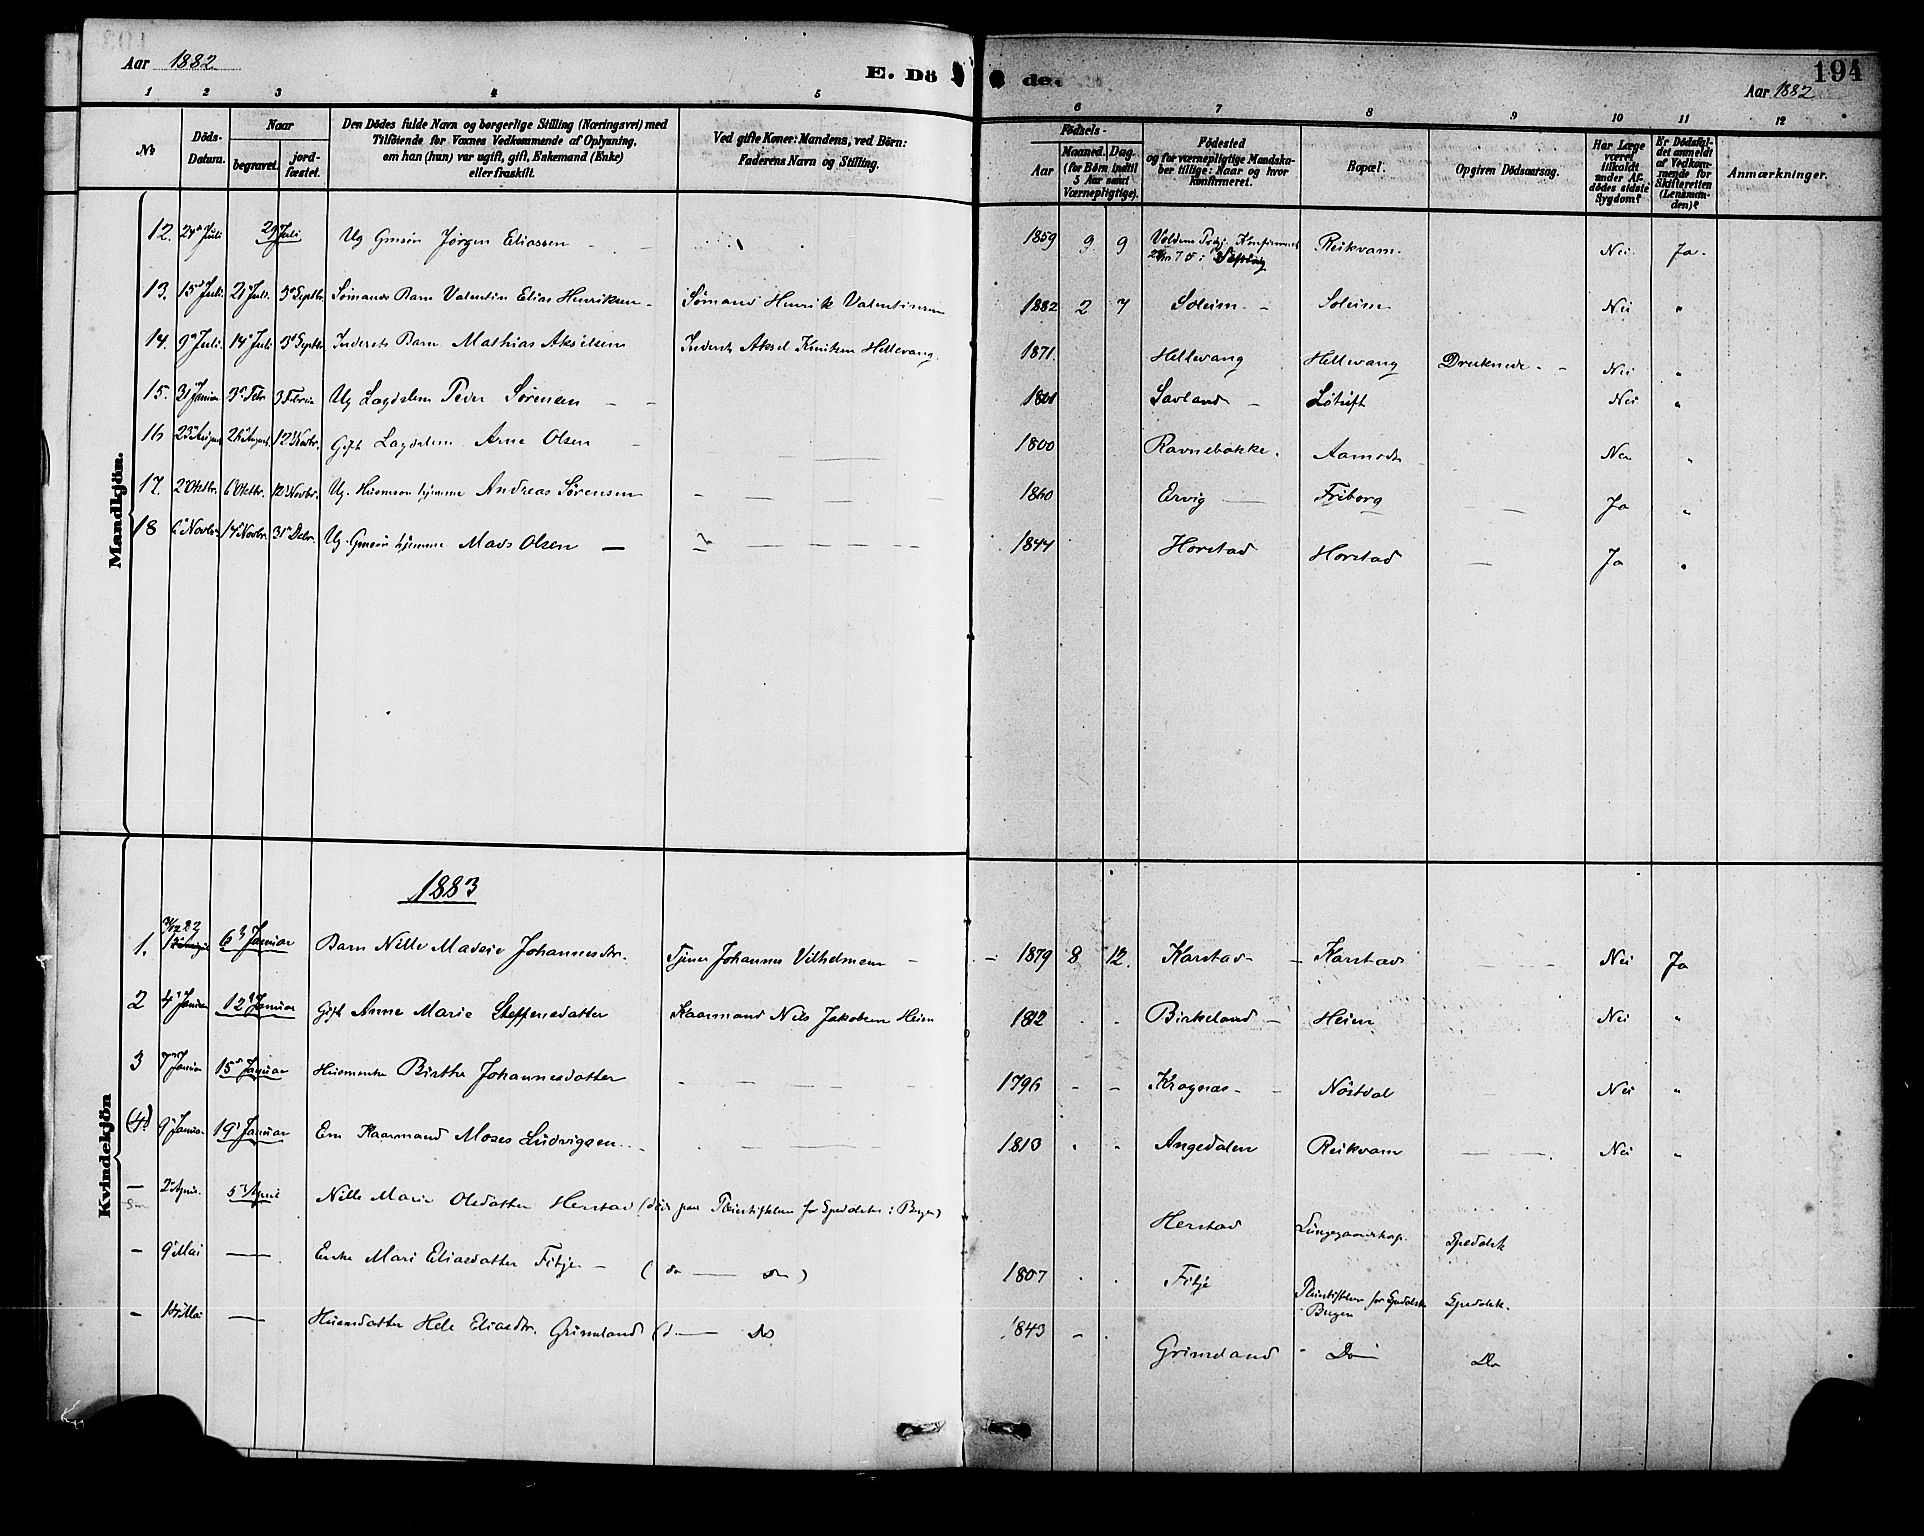 Aar 1882 E. Dö de. Aar 1882 194
1 2 3 4 5 6 7 8 9 10 11 12
No Döds-Datum. Naar begravet. jord-fæstet. Den Dödes fulde Navn og borgerlige Stilling (Næringsvei) med Tilföiende for Voxnes Vedkommende af Oplysning, om han (hun) var ugift, gift, Enkemand (Enke) eller fraskilt. Ved gifte Koner: Mandens, ved Börn: Faderens Navn og Stilling. Födsels- Aar Maaned. Dag. (for Börn indtil 5 Aar samt Værnepligtige). Födested og for værnepligtige Mandska-ber tillige: Naar og hvor Konfirmeret. Bopæl. Opgiven Dödsaarsag. Har Læge været tilkaldt under Af-dödes sidste Sygdom? Er Dödsfal-det anmeldt af Vedkom-mende for Skifteretten (Lensman-den)? Anmærkninger.
Mandkjön.
12. 24 Juli 29 Juli Ug Gmsön Jørgen Eliassen 1859 9 9 Voldens Konfirmeret Reikvam. Nei Ja.
13. 15 Juli 21 Juli 3 Septbr Sømands Barn Valentin Elias Henriksen Sømand Henrik Valentinsen 1882 2 7 Soleim Soleim Nei "
14. 9 Juli 14 Juli 3 Septbr Inderste Barn Mathias Akselsen Inderst Aksel Knutsen Hellevang. 1871. Hellevang Hellevang Druknede Nei "
15. 31 Januar 3 Febr 3 Februar Ug Lægdslem Peder Sørensen 1801 Savland Nei "
16 23 August 26 August 12 Novbr. Gift Lægdslem Arne Olsen 1800 Ravnebakke. Nei "
17. 2 Oktbr. 6 Oktbr. 12 Novbr. Ug. Husmson hjemme Andreas Sørensen 1860 Ervig Friborg Ja "
18 6 Novbr. 14 Novbr. 31 Debr. Ug. Gmsön hjemme Mads Olsen 1844 Horstad Horstad Ja "
Kvindekjön
1883
1. 31/12 82 6 Januar Barn Nille Madsie Johannesdtr. Tjener Johannes Vilhelmsen 1879 8 12. Karstad Karstad Nei Ja
2 4 Januar 12 Januar Gift Anne Marie Steffensdatter Kaarmand Nils Jakobsen Heim 1812 Birkeland Heim Nei "
3 7 Januar 15 Januar Husmenke Birthe Johannesdatter 1796 Kragnæs Nöstdal Nei "
(4) 9 Januar 19 Januar Em Kaarmand Moses Ludvigsen 1813 Angedalen Reikvam Nei "
2 April. 5 April Nille Marie Olsdatter Herstad (död paa Pleiestiftelsen for Spedalske i Bergen) Herstad Lungegaardshosp. Spedalsk
9 Mai Enke Mari Eliasdatter Fitje (do do) 1807 Fitje Pleiestiftelsen for Spedalske Bergen Spedalsk.
14 Mai Husmdatter Hele Eliasdtr. Grimeland (d do 1843 Grimeland Do Do